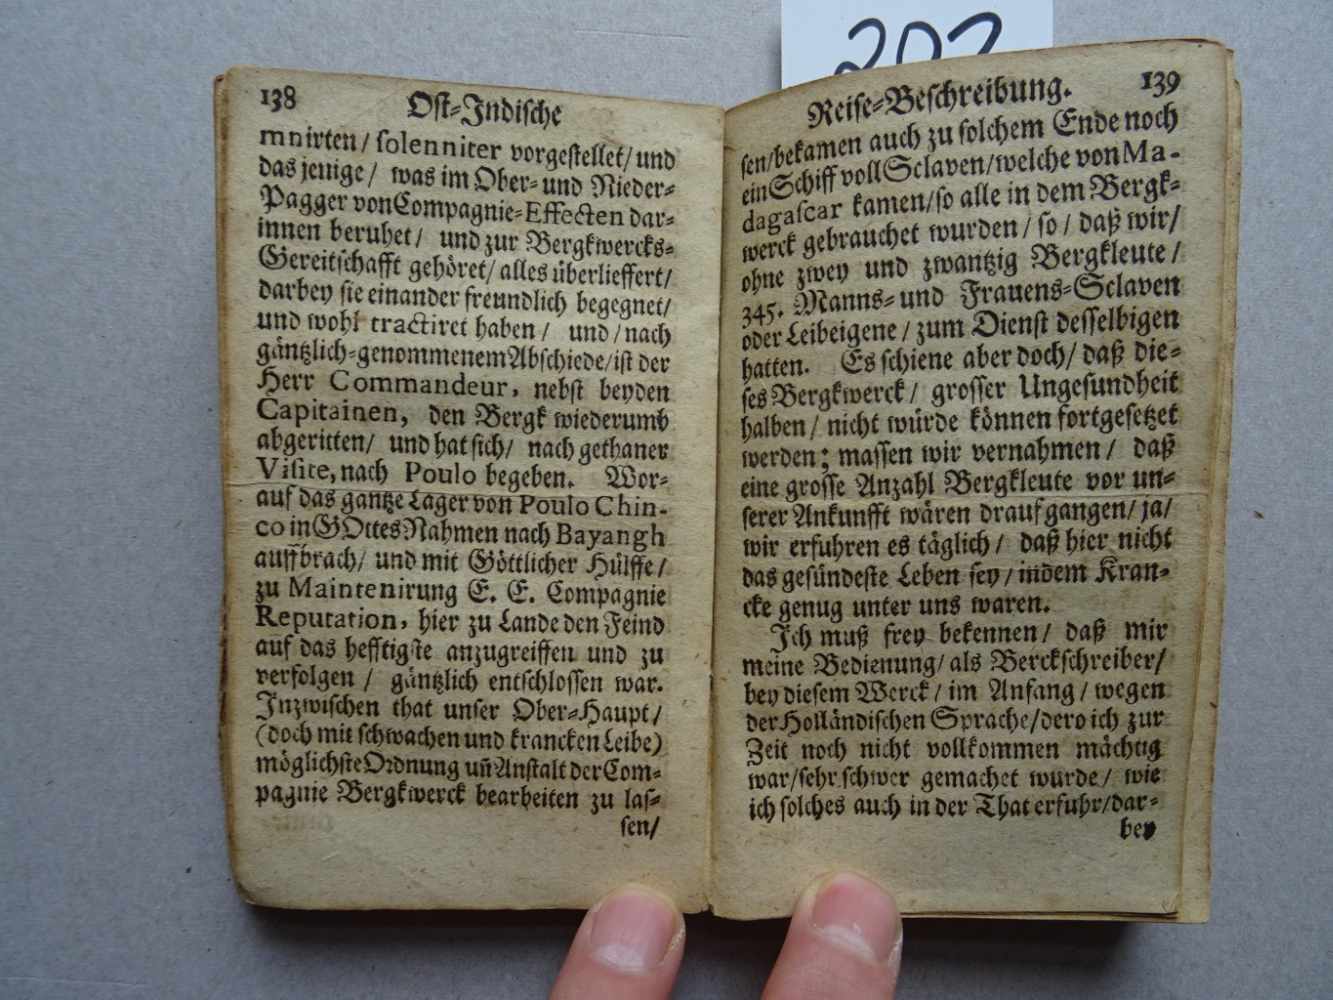 202
138
Ost-Indische
mnirten/ solenniter vorgestellet/ und
das jenige/ was im Ober- und Nieder-
Pagger von Compagnie-Effecten dar-
innen beruhet/ und zur Bergkwercks-
Gereitschafft gehöret/ alles überlieffert/
darbey sie einander freundlich begegnet/
und wohl tractiret haben/ und/ nach
gäntzlich-genommenem Abschiede/ ist der
Herr Commandeur, nebst beyden
Capitainen, den Bergk wiederumb
abgeritten/ und hat sich/ nach gethaner
Visite, nach Poulo begeben. Wor-
auf das gantze Lager von Poulo Chin-
co in GOttes Nahmen nach Bayangh
auffbrach/ und mit Göttlicher Hülffe/
zu Maintenirung E. E. Compagnie
Reputation, hier zu Lande den Feind
auf das hefftigste anzugreiffen und zu
verfolgen/ gäntzlich entschlossen war.
Inzwischen that unser Ober-Haupt/
(doch mit schwachen und krancken Leibe)
möglichste Ordnung uñ Anstalt der Com-
pagnie Bergkwerck bearbeiten zu las-
sen/
Reise-Beschreibung.
139
sen/ bekamen auch zu solchem Ende noch
ein Schiff voll Sclaven/ welche von Ma-
dagascar kamen/ so alle in dem Bergk-
werck gebrauchet wurden/ so/ daß wir/
ohne zwey und zwantzig Bergkleute/
345. Manns- und Frauens-Sclaven
oder Leibeigene/ zum Dienst desselbigen
hatten. Es schiene aber doch/ daß die-
ses Bergkwerck/ grosser Ungesundheit
halben/ nicht würde können fortgesetzet
werden; massen wir vernahmen/ daß
eine grosse Anzahl Bergkleute vor un-
serer Ankunfft wären drauf gangen/ ja/
wir erfuhren es täglich/ daß hier nicht
das gesündeste Leben sey/ indem Kran-
cke genug unter uns waren.
Ich muß frey bekennen/ daß mir
meine Bedienung/ als Berckschreiber/
bey diesem Werck/ im Anfang/ wegen
der Holländischen Sprache/ dero ich zur
Zeit noch nicht vollkommen mächtig
war/ sehr schwer gemachet wurde/ wie
ich solches auch in der That erfuhr/ dar-
bey